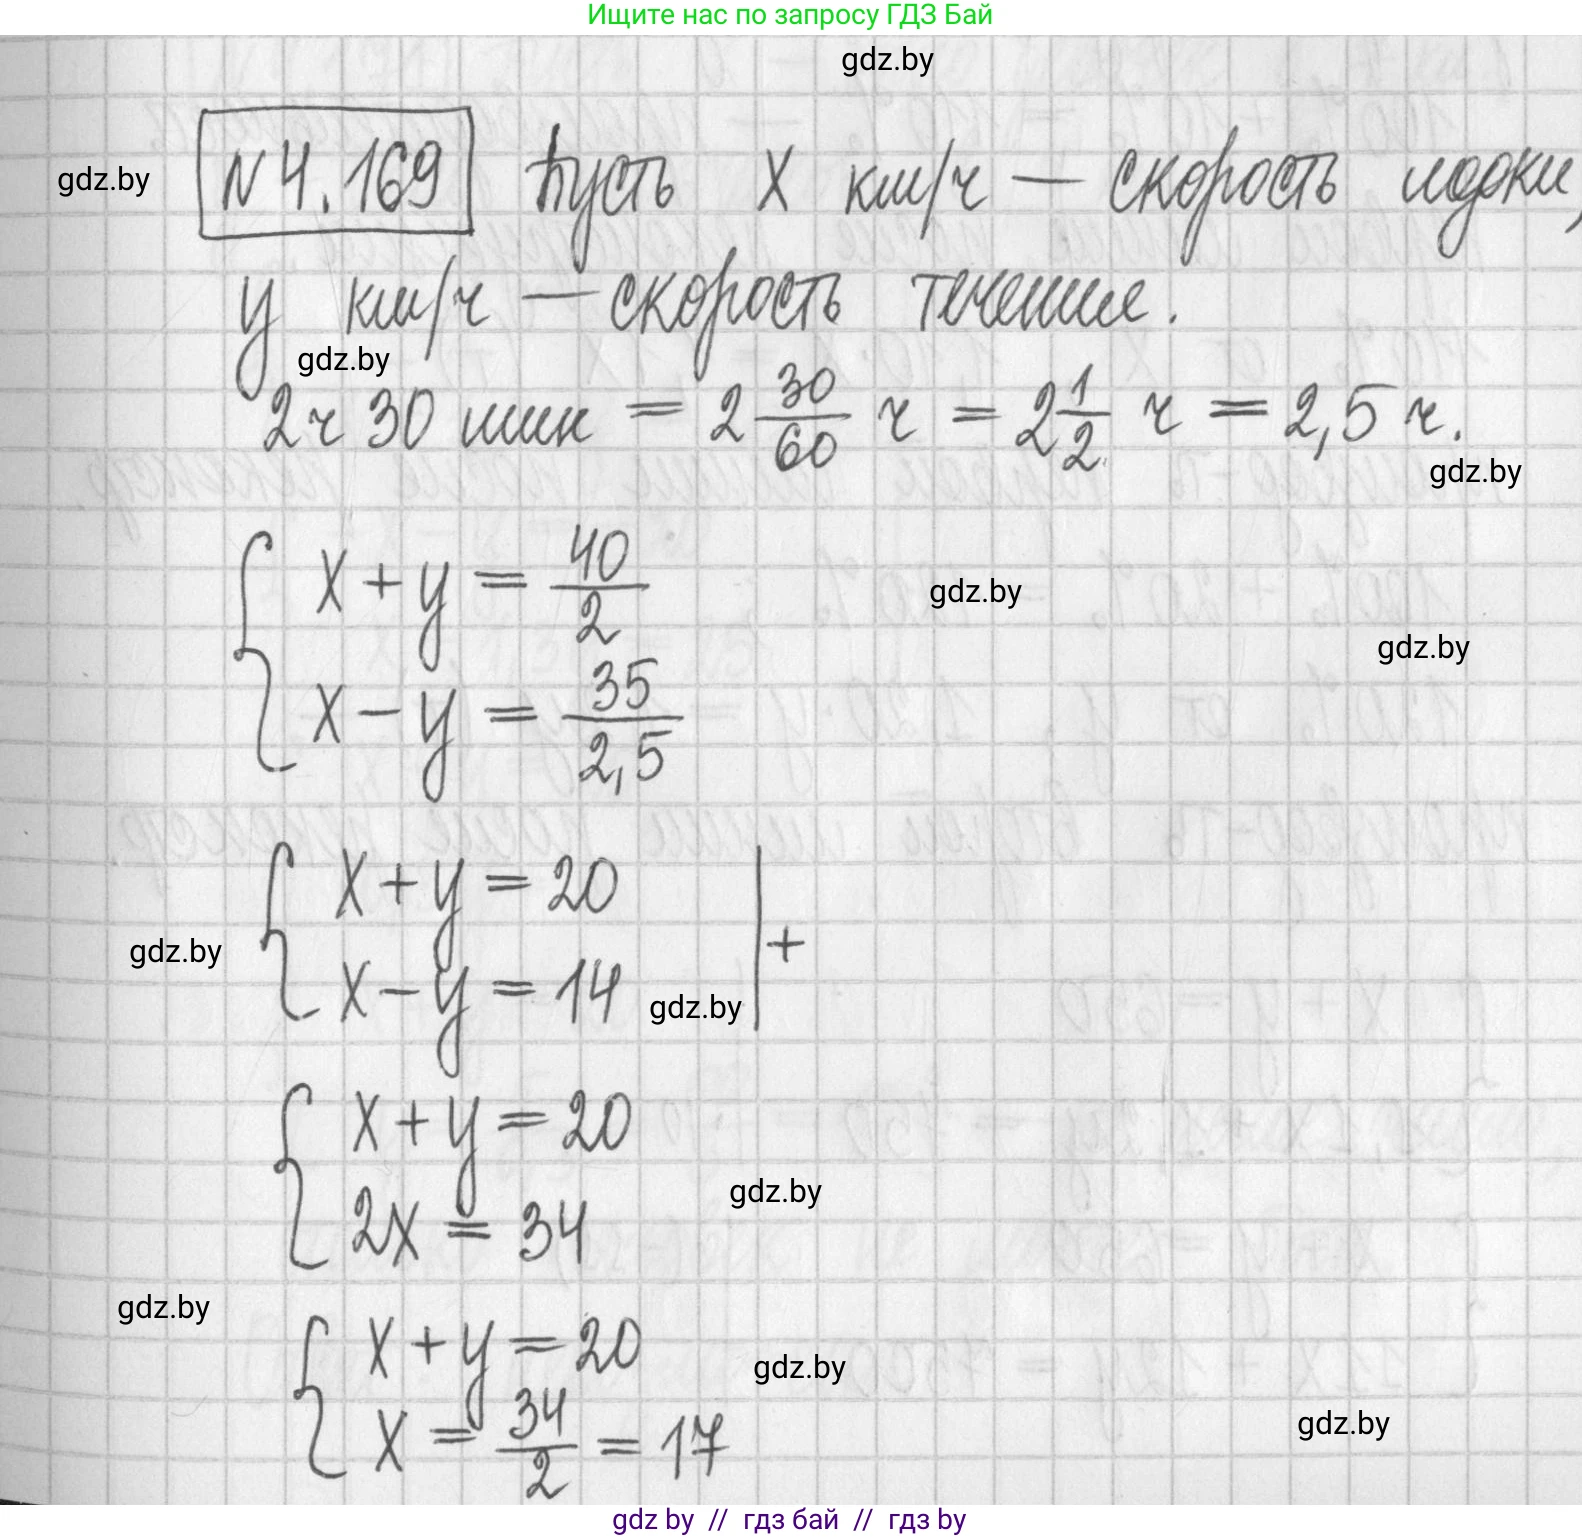 Ищите нас по запросу ГДЗ Бай
gdz.by
gdz.by
№4.169 Пусть x км/ч — скорость лодки,
y км/ч — скорость течения.
gdz.by
2 ч 30 мин = 2 30/60 ч = 2 1/2 ч = 2,5 ч.
gdz.by
{ x + y = 40/2
gdz.by
gdz.by
x − y = 35/2,5
{ x + y = 20 | +
gdz.by
x − y = 14
gdz.by
{ x + y = 20
gdz.by
2x = 34
gdz.by
{ x + y = 20
gdz.by
gdz.by
x = 34/2 = 17
gdz by // гдз бай // гдз by